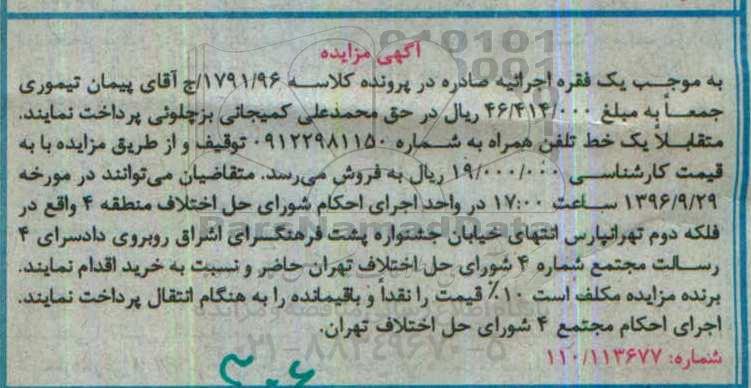 آگهی مزایده
به موجب یک فقره اجرائیه صادره در پرونده کلاسه ۱۷۹۱/۹۶/ج آقای پیمان تیموری
جمعاً به مبلغ ۴۶/۴۱۴/۰۰۰ ریال در حق محمدعلی کمیجانی بزچلوئی پرداخت نمایند.
متقابلاً یک خط تلفن همراه به شماره ۰۹۱۲۲۹۸۱۱۵۰ توقیف و از طریق مزایده با به
قیمت کارشناسی ۱۹/۰۰۰/۰۰۰ ریال به فروش می‌رسد. متقاضیان می‌توانند در مورخه
۱۳۹۶/۹/۲۹ ساعت ۱۷:۰۰ در واحد اجرای احکام شورای حل اختلاف منطقه ۴ واقع در
فلکه دوم تهرانپارس انتهای خیابان جشنواره پشت فرهنگسرای اشراق روبروی دادسرای ۴
رسالت مجتمع شماره ۴ شورای حل اختلاف تهران حاضر و نسبت به خرید اقدام نمایند.
برنده مزایده مکلف است ۱۰٪ قیمت را نقداً و باقیمانده را به هنگام انتقال پرداخت نمایند.
اجرای احکام مجتمع ۴ شورای حل اختلاف تهران.
شماره: ۱۱۰/۱۱۳۶۷۷
ParsNamadData
۰۲۱-۸۸۳۴۹۶۷۰-۵